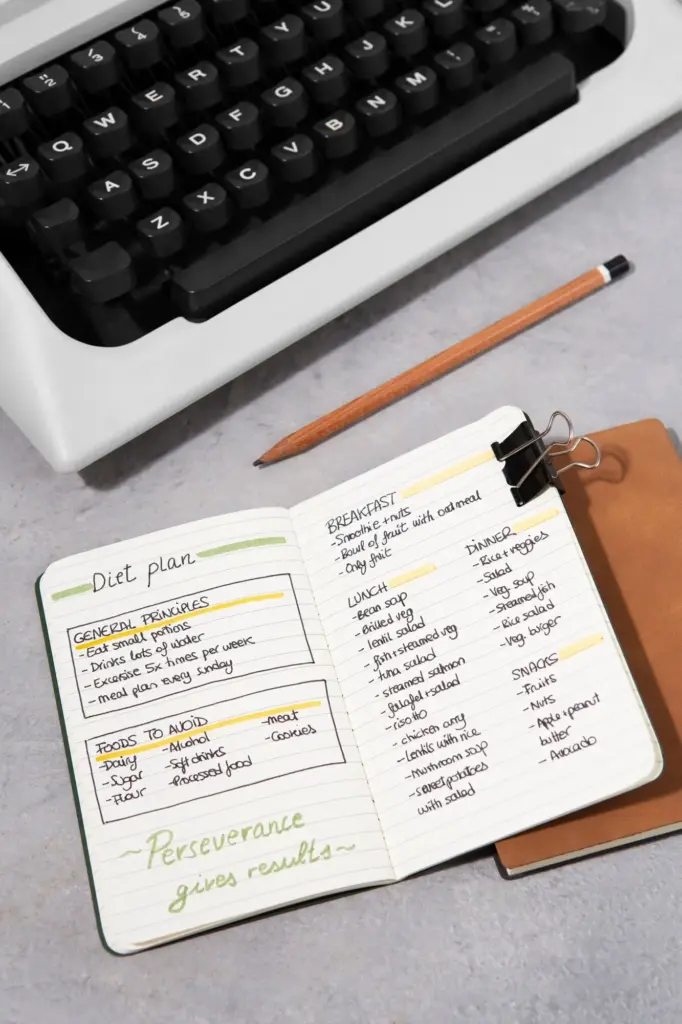 1 "2 3 4 5 6 7 8
Q W E R T Y U
A S D F G H J K L
Z X C V B N M
Diet plan
GENERAL PRINCIPLES
- Eat small portions
- Drinks lots of water
- Excersise 5x times per week
- meal plan every sunday
FOODS TO AVOID
- Dairy
- Sugar
- Flour
- Alcohol
- Soft drinks
- Processed food
- meat
- Cookies
~Perseverance
gives results~
BREAKFAST
- Smoothie + nuts
- Bowl of fruit with oatmeal
- Only fruit
LUNCH
- Bean soup
- Grilled veg
- lentil salad
- fish + steamed veg
- tuna salad
- steamed salmon
- falafel + salad
- risotto
- chicken
- Lentils with rice
- Mushroom soup
- sweet potatoes
with salad
DINNER
- Rice + veggies
- Salad
- Veg. soup
- Steamed fish
- Rice salad
- Veg. burger
SNACKS
- Fruits
- Nuts
- Apple + peanut
butter
- Avocado